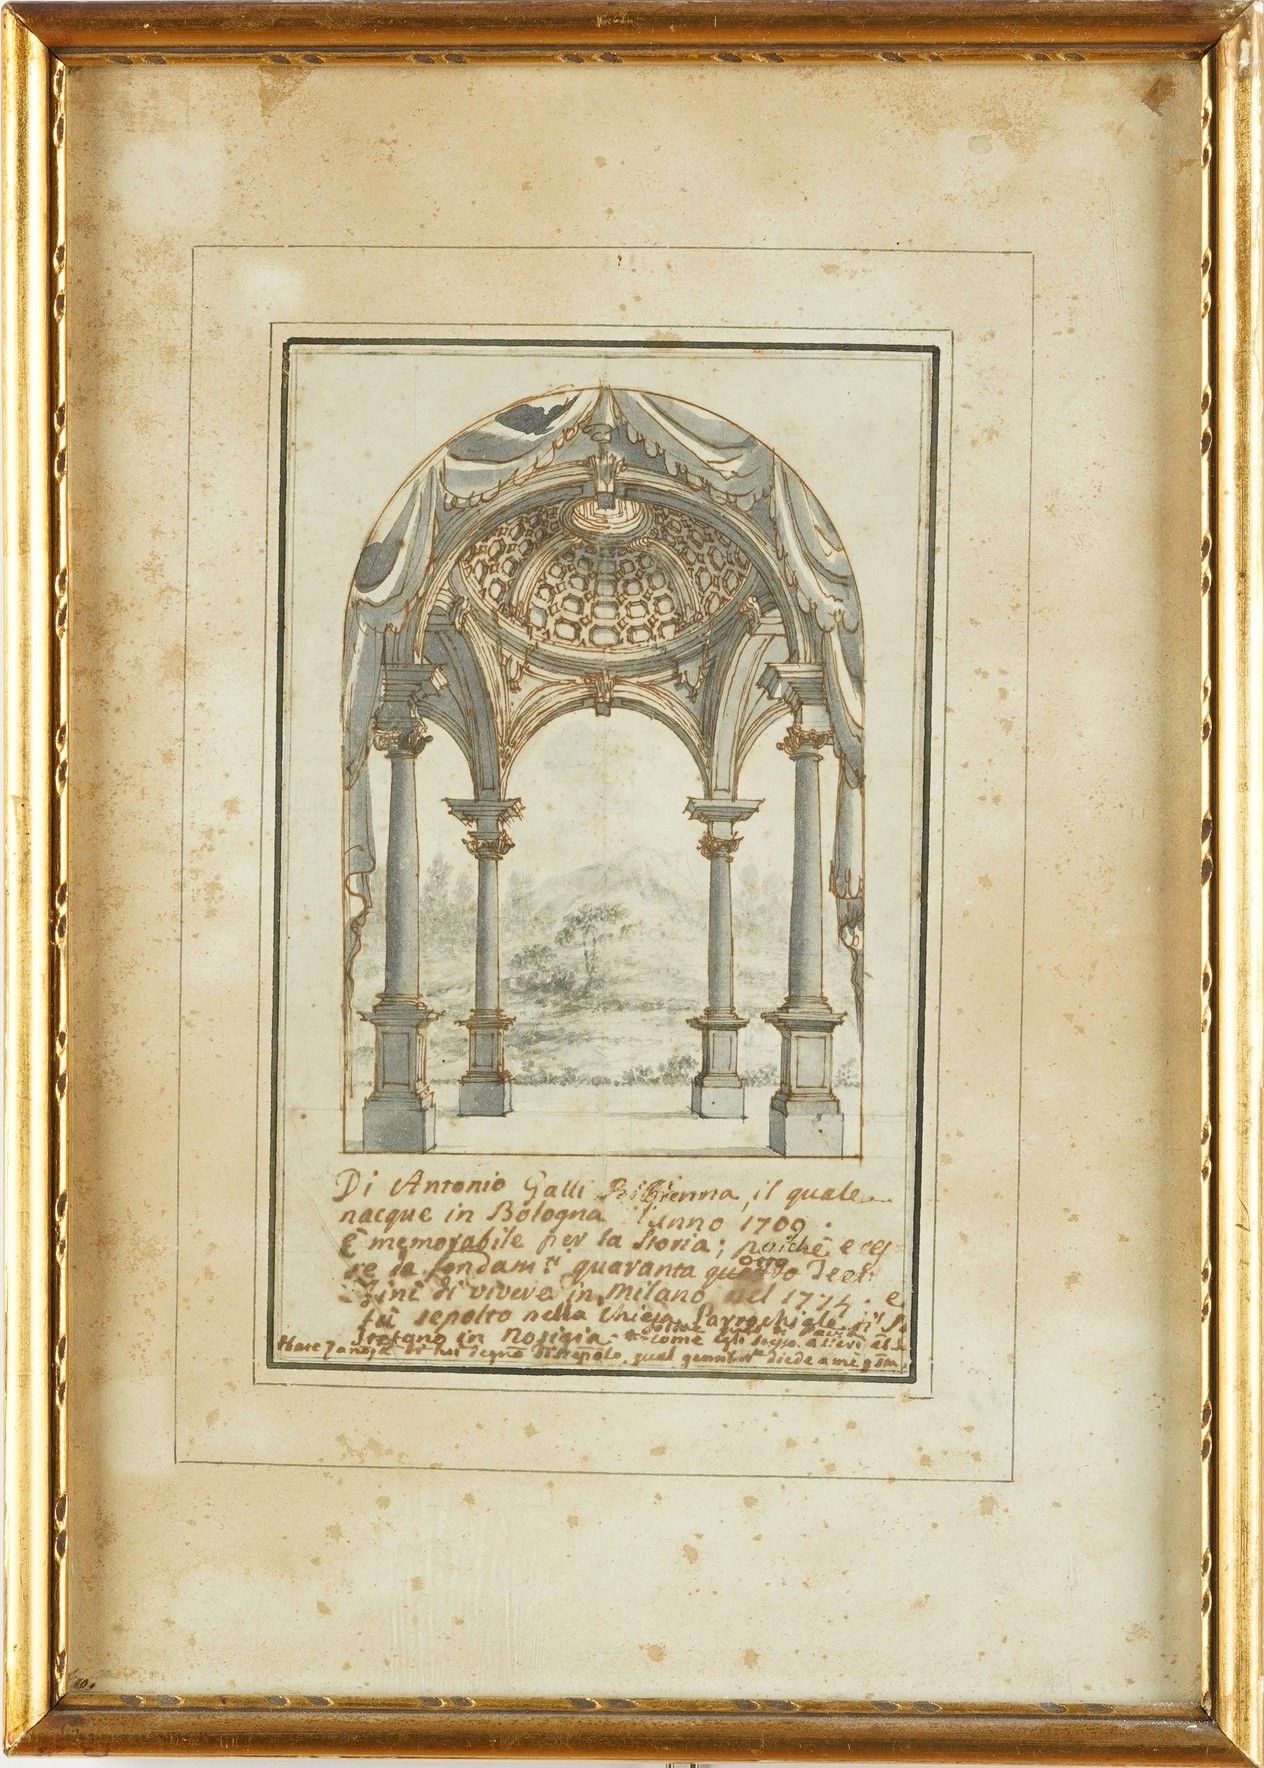 Di Antonio Galli Bibienna, il quale
nacque in Bologna l'anno 1709.
è memorabile per la storia; poiché eres
se da fondam.ti quaranta quattro Teat
Finì di vivere in Milano nel 1774. e
fù sepolto nella Chiesa Parrochiale di S.
Steffano in Nosigia. come egli
di lui degno discepolo, qual diede a me
10.